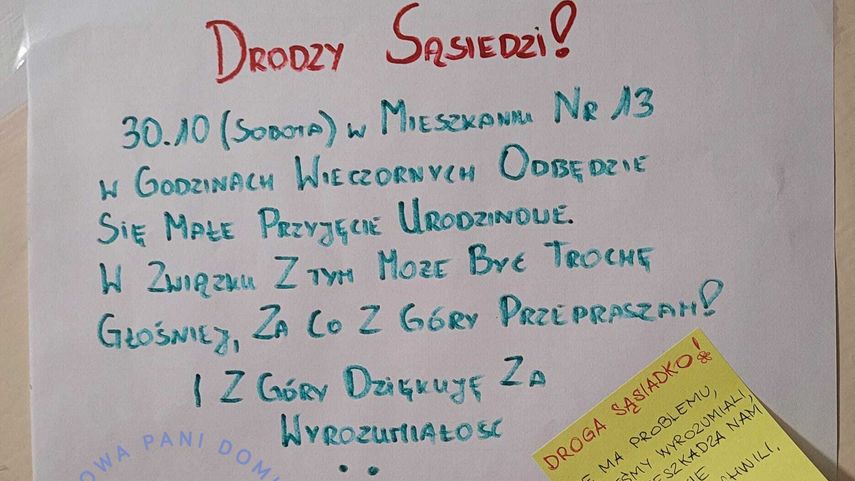 DRODZY SĄSIEDZI!
30.10 (SOBOTA) W MIESZKANIU NR 13
W GODZINACH WIECZORNYCH ODBĘDZIE
SIĘ MAŁE PRZYJĘCIE URODZINOWE.
W ZWIĄZKU Z TYM MOŻE BYĆ TROCHĘ
GŁOŚNIEJ, ZA CO Z GÓRY PRZEPRASZAM!
I Z GÓRY DZIĘKUJĘ ZA
WYROZUMIAŁOŚĆ
DROGA SĄSIADKO!
MA PROBLEMU,
WYROZUMIALI,
NAM
CHWILI.
PANI